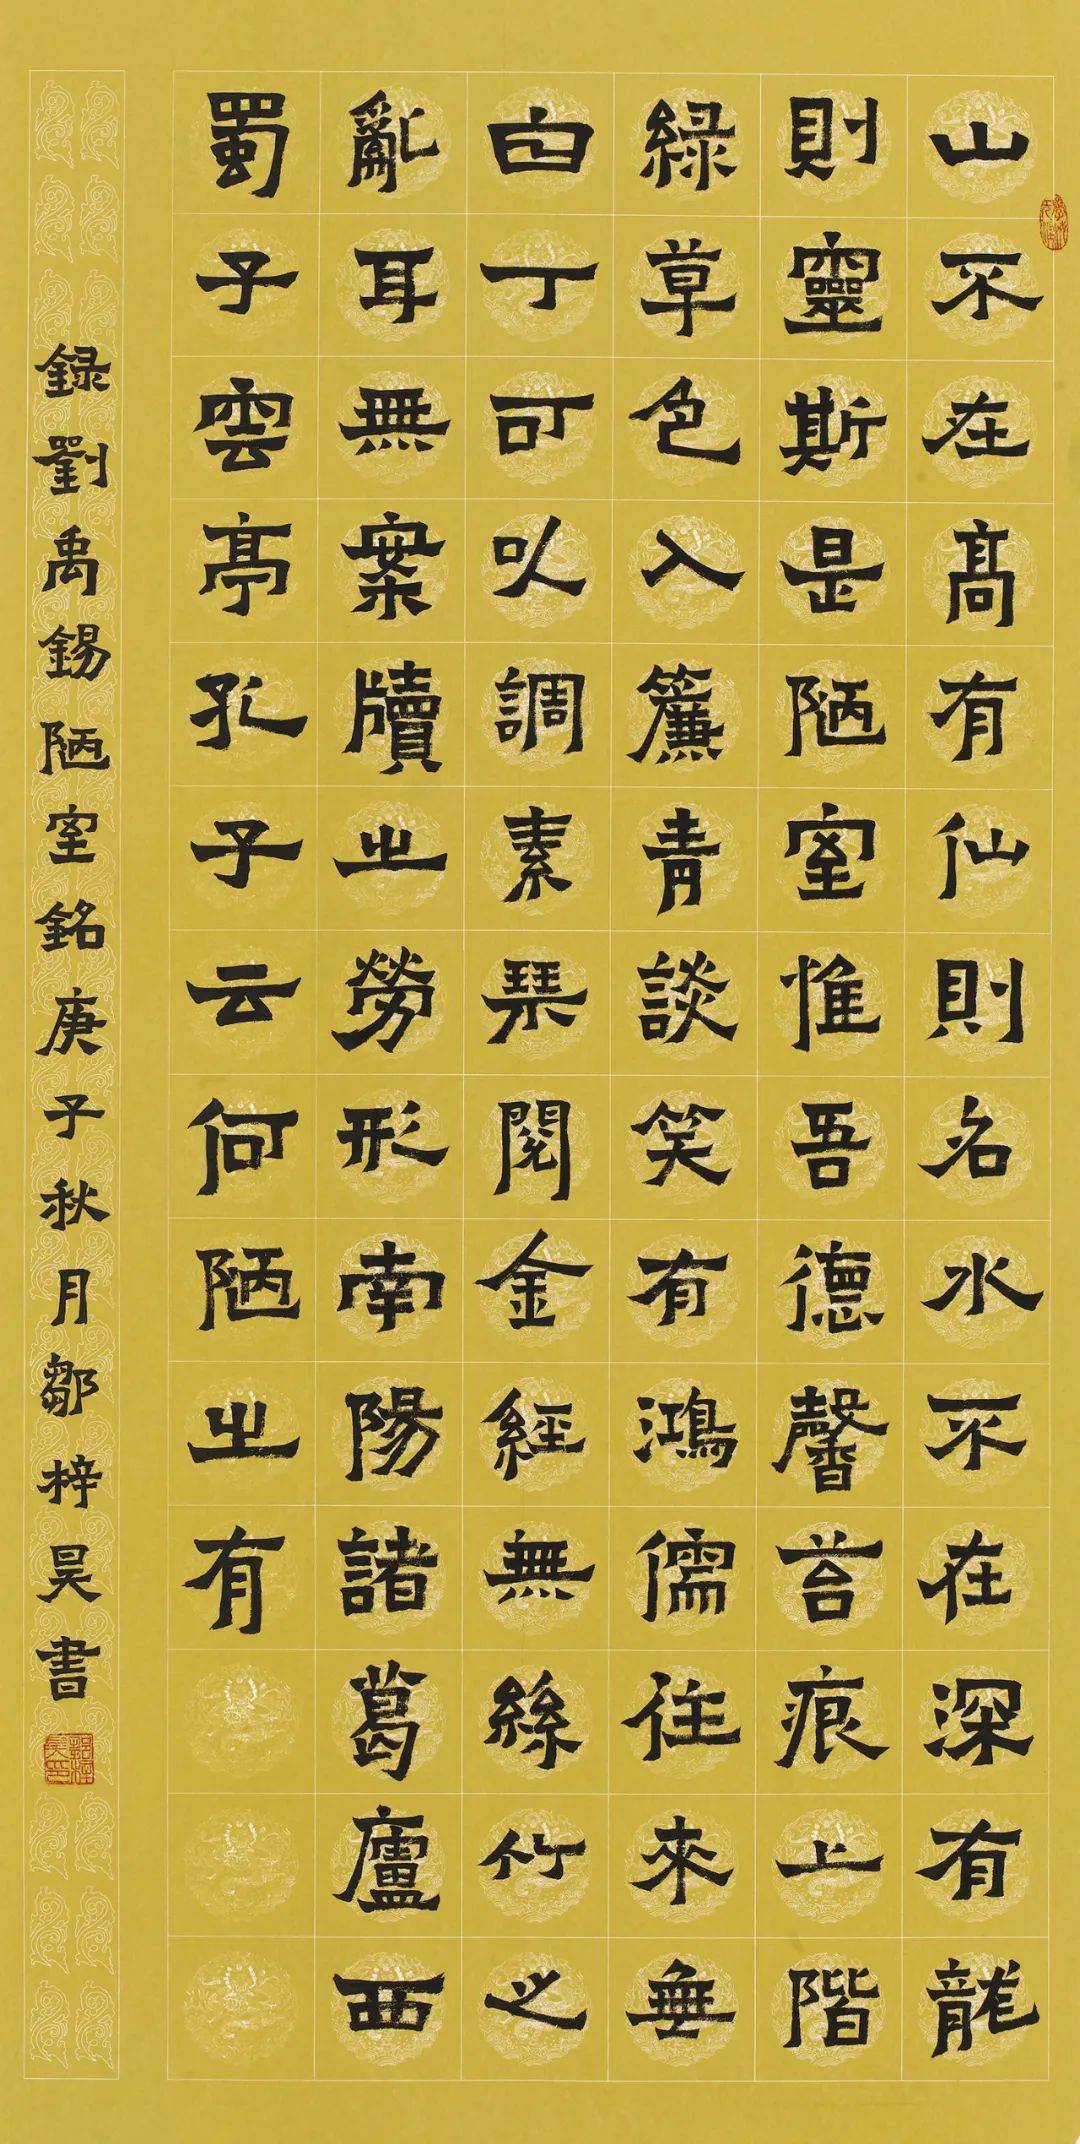 山不在髙有仙則名水不在深有龍
則靈斯是陋室惟吾德馨苔痕上階
緑草色入簾青談笑有鴻儒往來垂
白丁可以調素琹閱金經無絲竹之
亂耳無案牘之勞形南陽諸葛廬西
蜀子雲亭孔子云何陋之有
録劉禹錫陋室銘庚子秋月鄒梓昊書